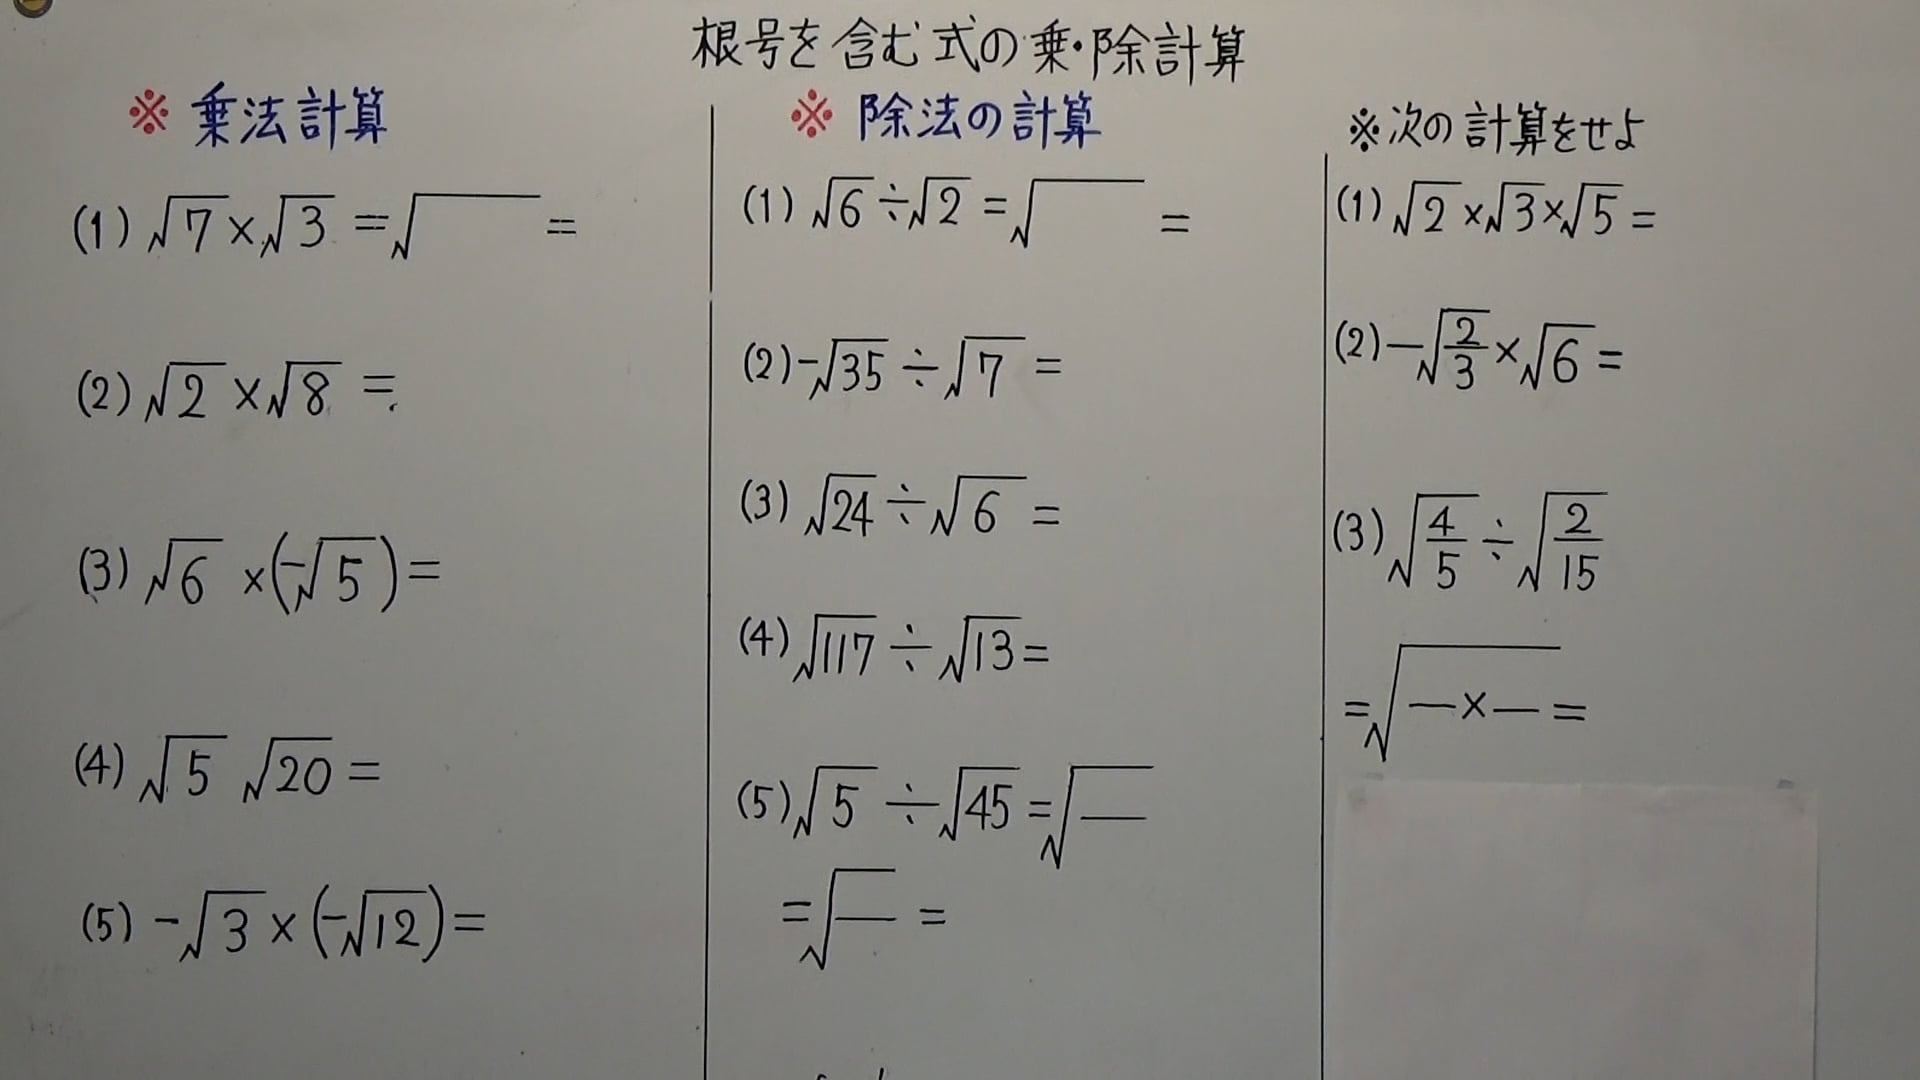 根号を含む式の乗・除計算
※ 乗法計算
(1) √7×√3 =√ =
(2) √2 ×√8 =
(3) √6 ×(-√5)=
(4) √5 √20 =
(5) -√3 × (-√12)=
※ 除法の計算
(1) √6÷√2 =√ =
(2) -√35 ÷ √7 =
(3) √24 ÷ √6 =
(4) √117 ÷ √13 =
(5) √5 ÷ √45 =√—
=√— =
※次の計算をせよ
(1) √2 ×√3×√5 =
(2) -√2/3 ×√6 =
(3) √4/5 ÷ √2/15
=√— × — =